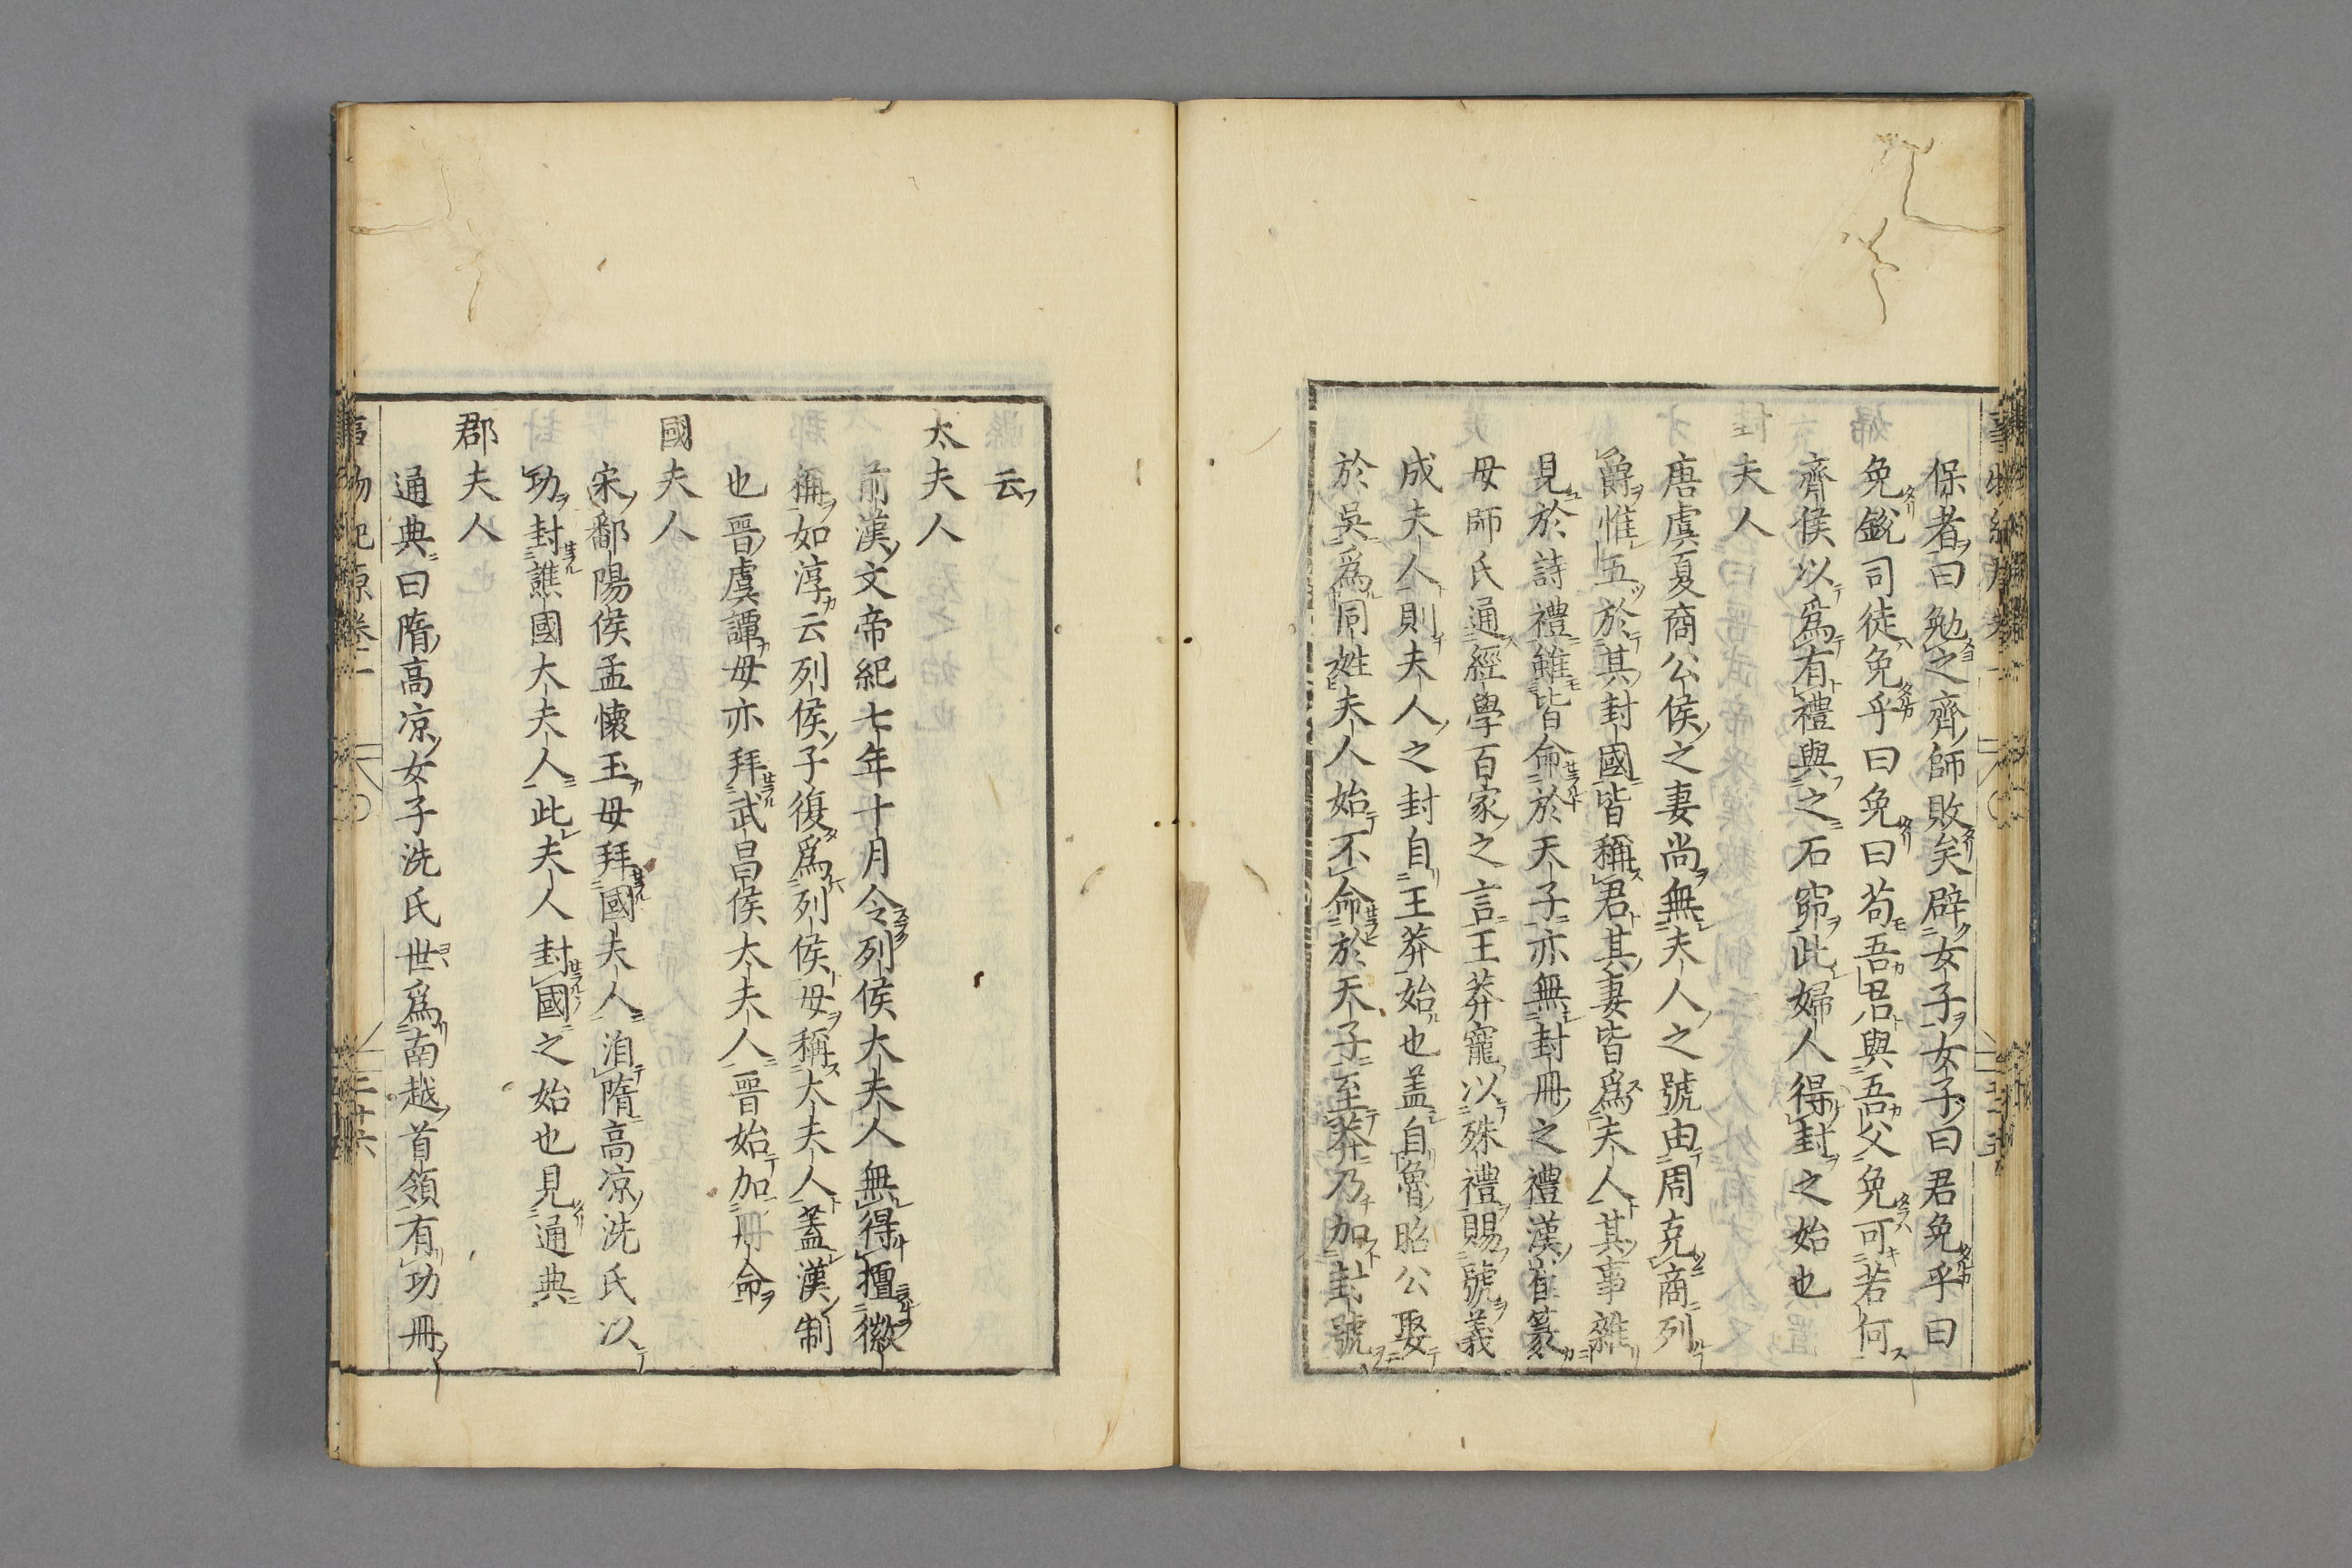 保者曰勉之齊師敗矣辟女子女子曰君免乎曰
免銳司徒免乎曰免曰苟吾君與吾父免可若何
齊侯以爲有禮與之石窌此婦人得封之始也
夫人
唐虞夏商公侯之妻尚無夫人之號由周克商列
爵惟五於其封國皆稱君其妻皆爲夫人其事雜
見於詩禮雖皆命於天子亦無封冊之禮漢崔篆
母師氏通經學百家之言王莽寵以殊禮賜號義
成夫人則夫人之封自王莽始也盖自魯昭公娶
於吳爲同姓夫人始不命於天子至莽乃加封號
云
太夫人
前漢文帝紀七年十月令列侯太夫人無得擅徵
稱如淳云列侯子復爲列侯母稱太夫人蓋漢制
也晉虞譚母亦拜武昌侯太夫人晉始加冊命
國夫人
宋鄱陽侯孟懷玉母拜國夫人洎隋高凉洗氏以
功封譙國太夫人此夫人封國之始也見通典
郡夫人
通典曰隋高凉女子洗氏世爲南越首領有功冊
事物紀原卷二
二十六